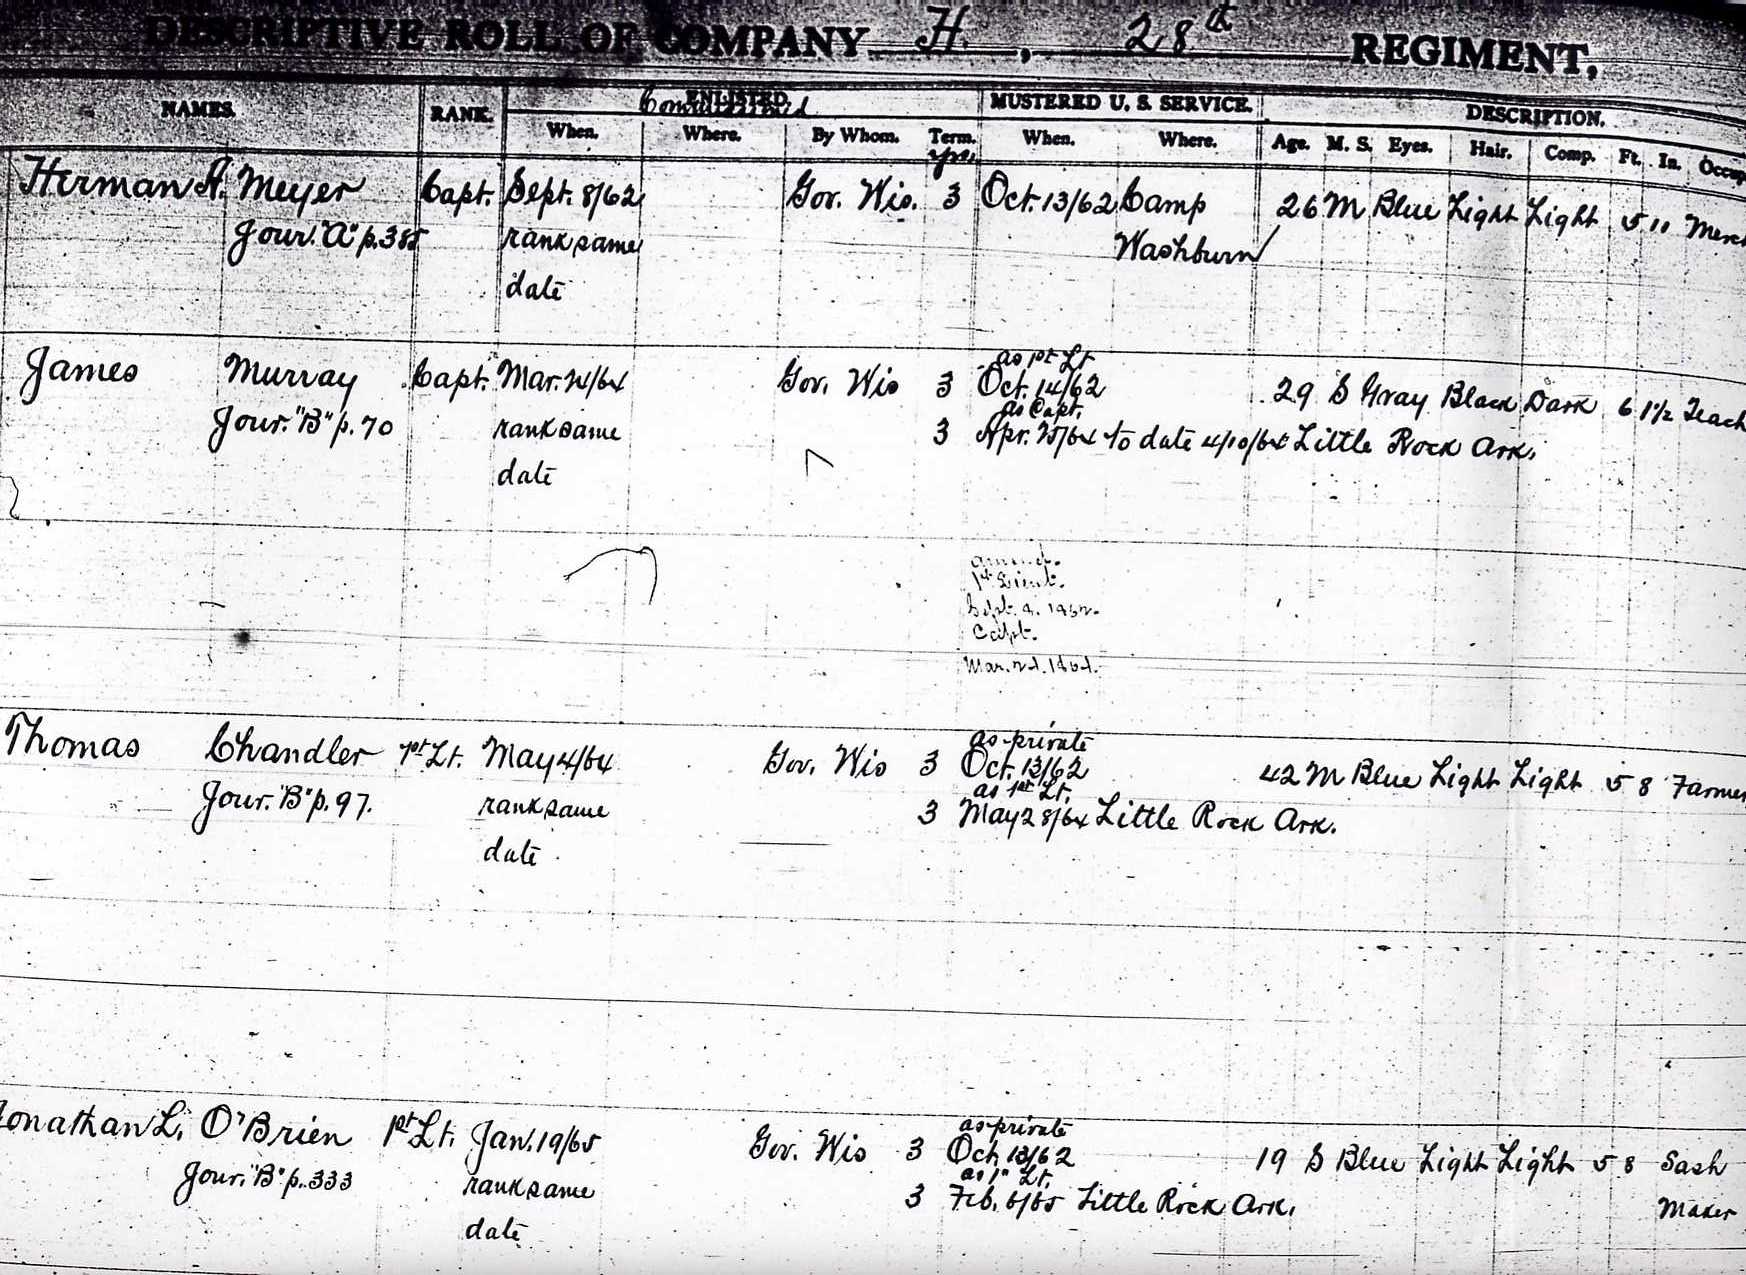 DESCRIPTIVE ROLL OF COMPANY H, 28th REGIMENT,
NAMES. RANK. ENLISTED. MUSTERED U. S. SERVICE. DESCRIPTION.
When. Where. By Whom. Term. When. Where. Age. M. S. Eyes. Hair. Comp. Ft. In. Occup
yrs.
Herman A. Meyer Capt. Sept. 8/62 Gov. Wis. 3 Oct. 13/62 Camp 26 M Blue Light Light 5 11 Merch
Jour. "A" p. 385 rank same Washburn
date
as 1st Lt
James Murray Capt. Mar. 24/64 Gov. Wis 3 Oct. 14/62 29 S Gray Black Dark 6 1½ Teach
as Capt.
Jour. "B" p. 70 rank same 3 Apr. 25/64 to date 4/10/64 Little Rock Ark.
date
1st Lieut.
Sept. 
Capt.
Mar.
as private
Thomas Chandler 1st Lt. May 4/64 Gov. Wis 3 Oct. 13/62 42 M Blue Light Light 5 8 Farmer
as 1st Lt.
Jour. "B" p. 97. rank same 3 May 28/64 Little Rock Ark.
date
as private
Jonathan L. O'Brien 1st Lt. Jan. 19/65 Gov. Wis 3 Oct. 13/62 19 S Blue Light Light 5 8 Sash
as 1" Lt.
Jour. "B" p. 333 rank same 3 Feb. 6/65 Little Rock Ark. Maker
date